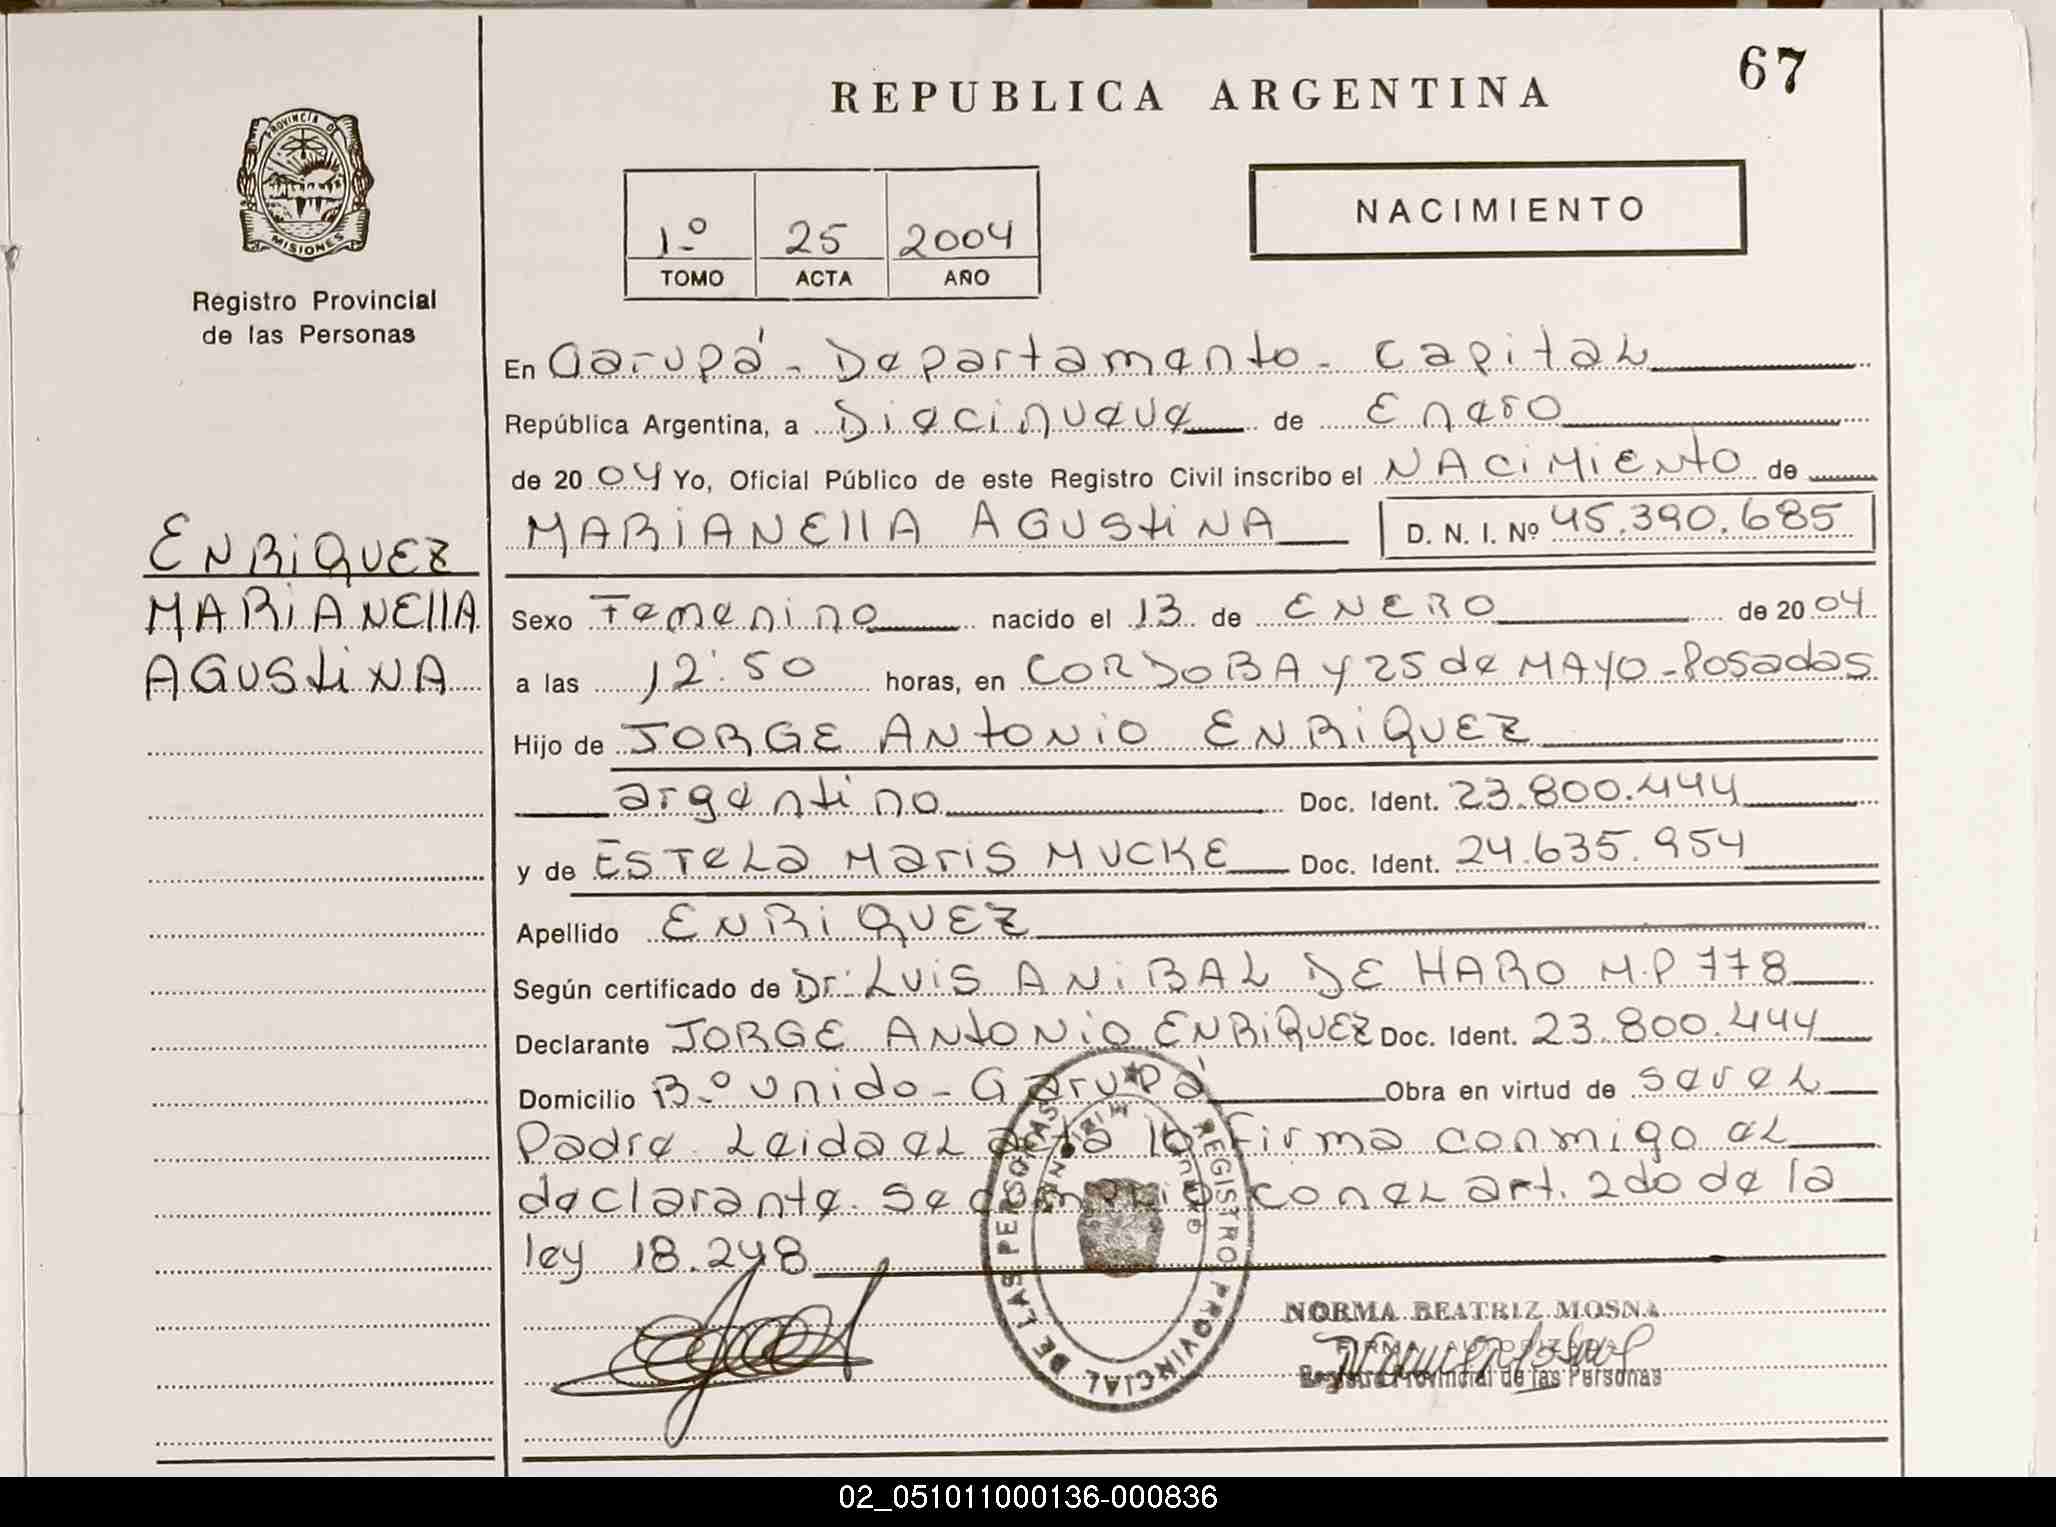 67
REPUBLICA ARGENTINA
PROVINCIA DE
MISIONES
Registro Provincial
de las Personas
1º 25 2004
TOMO ACTA AÑO
NACIMIENTO
En Garupá - Departamento - Capital
República Argentina, a Diecinueve de Enero
de 2004 Yo, Oficial Público de este Registro Civil inscribo el NACIMIENTO de
MARIANELLA AGUSTINA D. N. I. Nº 45.390.685
ENRIQUEZ
MARIANELLA
AGUSTINA
Sexo Femenino nacido el 13 de ENERO de 2004
a las 12:50 horas, en CORDOBA Y 25 de MAYO - Posadas
Hijo de JORGE ANTONIO ENRIQUEZ
argentino Doc. Ident. 23.800.444
y de ESTELA MARIS MUCKE Doc. Ident. 24.635.954
Apellido ENRIQUEZ
Según certificado de Dr. LUIS ANIBAL DE HARO M.P 778
Declarante JORGE ANTONIO ENRIQUEZ Doc. Ident. 23.800.444
Domicilio Bº Unido - Garupá Obra en virtud de ser el
Padre. Leida el acta la firma conmigo el
declarante. Se cumplió con el art. 2do de la
ley 18.248
REGISTRO PROVINCIAL DE LAS PERSONAS
NORMA BEATRIZ MOSNA
FIRMA AUTORIZADA
Registro Provincial de las Personas
02_051011000136-000836